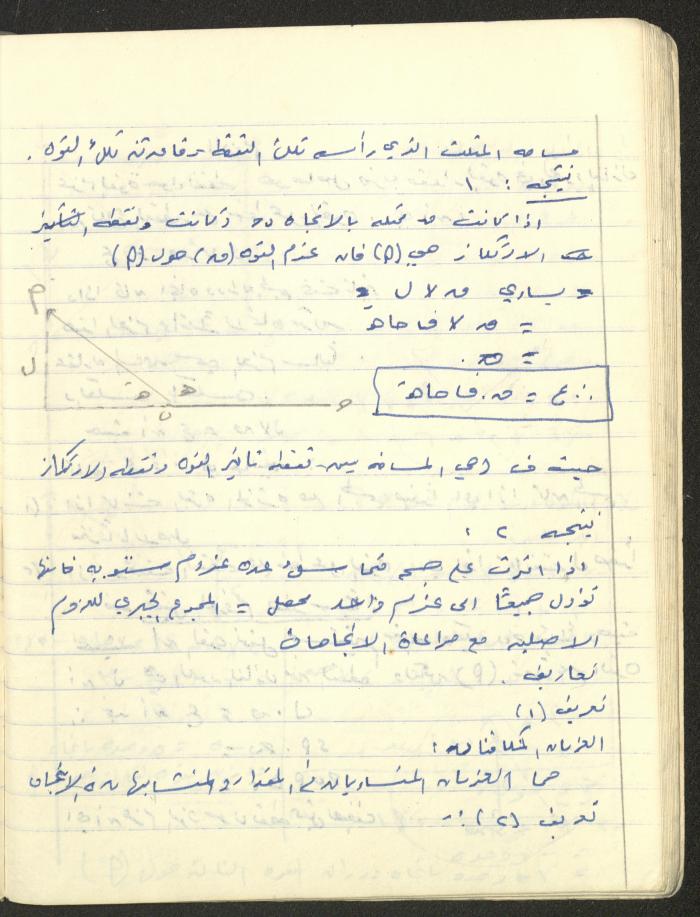 مساحه المثلث الذي رأسه تلك النقطه وقاعدته تلك القوه .
نتيجه : ١
اذا كانت ق ممثله بالاتجاه د ه وكانت ونقطه التأثير
الارتكاز هي (م) فان عزم القوه (ق) حول (م)
= يساوي ق × ل
= ق × ف حا هـ
=
∴ ع = ق . ف حا هـ
م
ل
هـ
هـ
ن
حيث ف هي المسافه بين نقطه تاثير القوه ونقطه الارتكاز
نتيجه ٢ :
اذا اثرت على جسم متماسك عده عزوم مستويه فانها
تؤول جميعًا الى عزم واحد محصل = المجموع الجبري للعزوم
الاصليه مع مراعاة الاتجاهات
تعاريف .
تعريف (١)
العزمان المتكافئان :
هما العزمان المتساويان في المقدار والمتشابهان في الاتجاه
تعريف (٢) :-